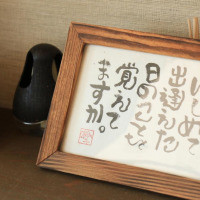 はじめて
出逢えた
日のことを
覚えて
ますか。